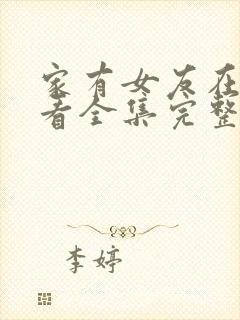 家有女友在
看全集完整
李婷